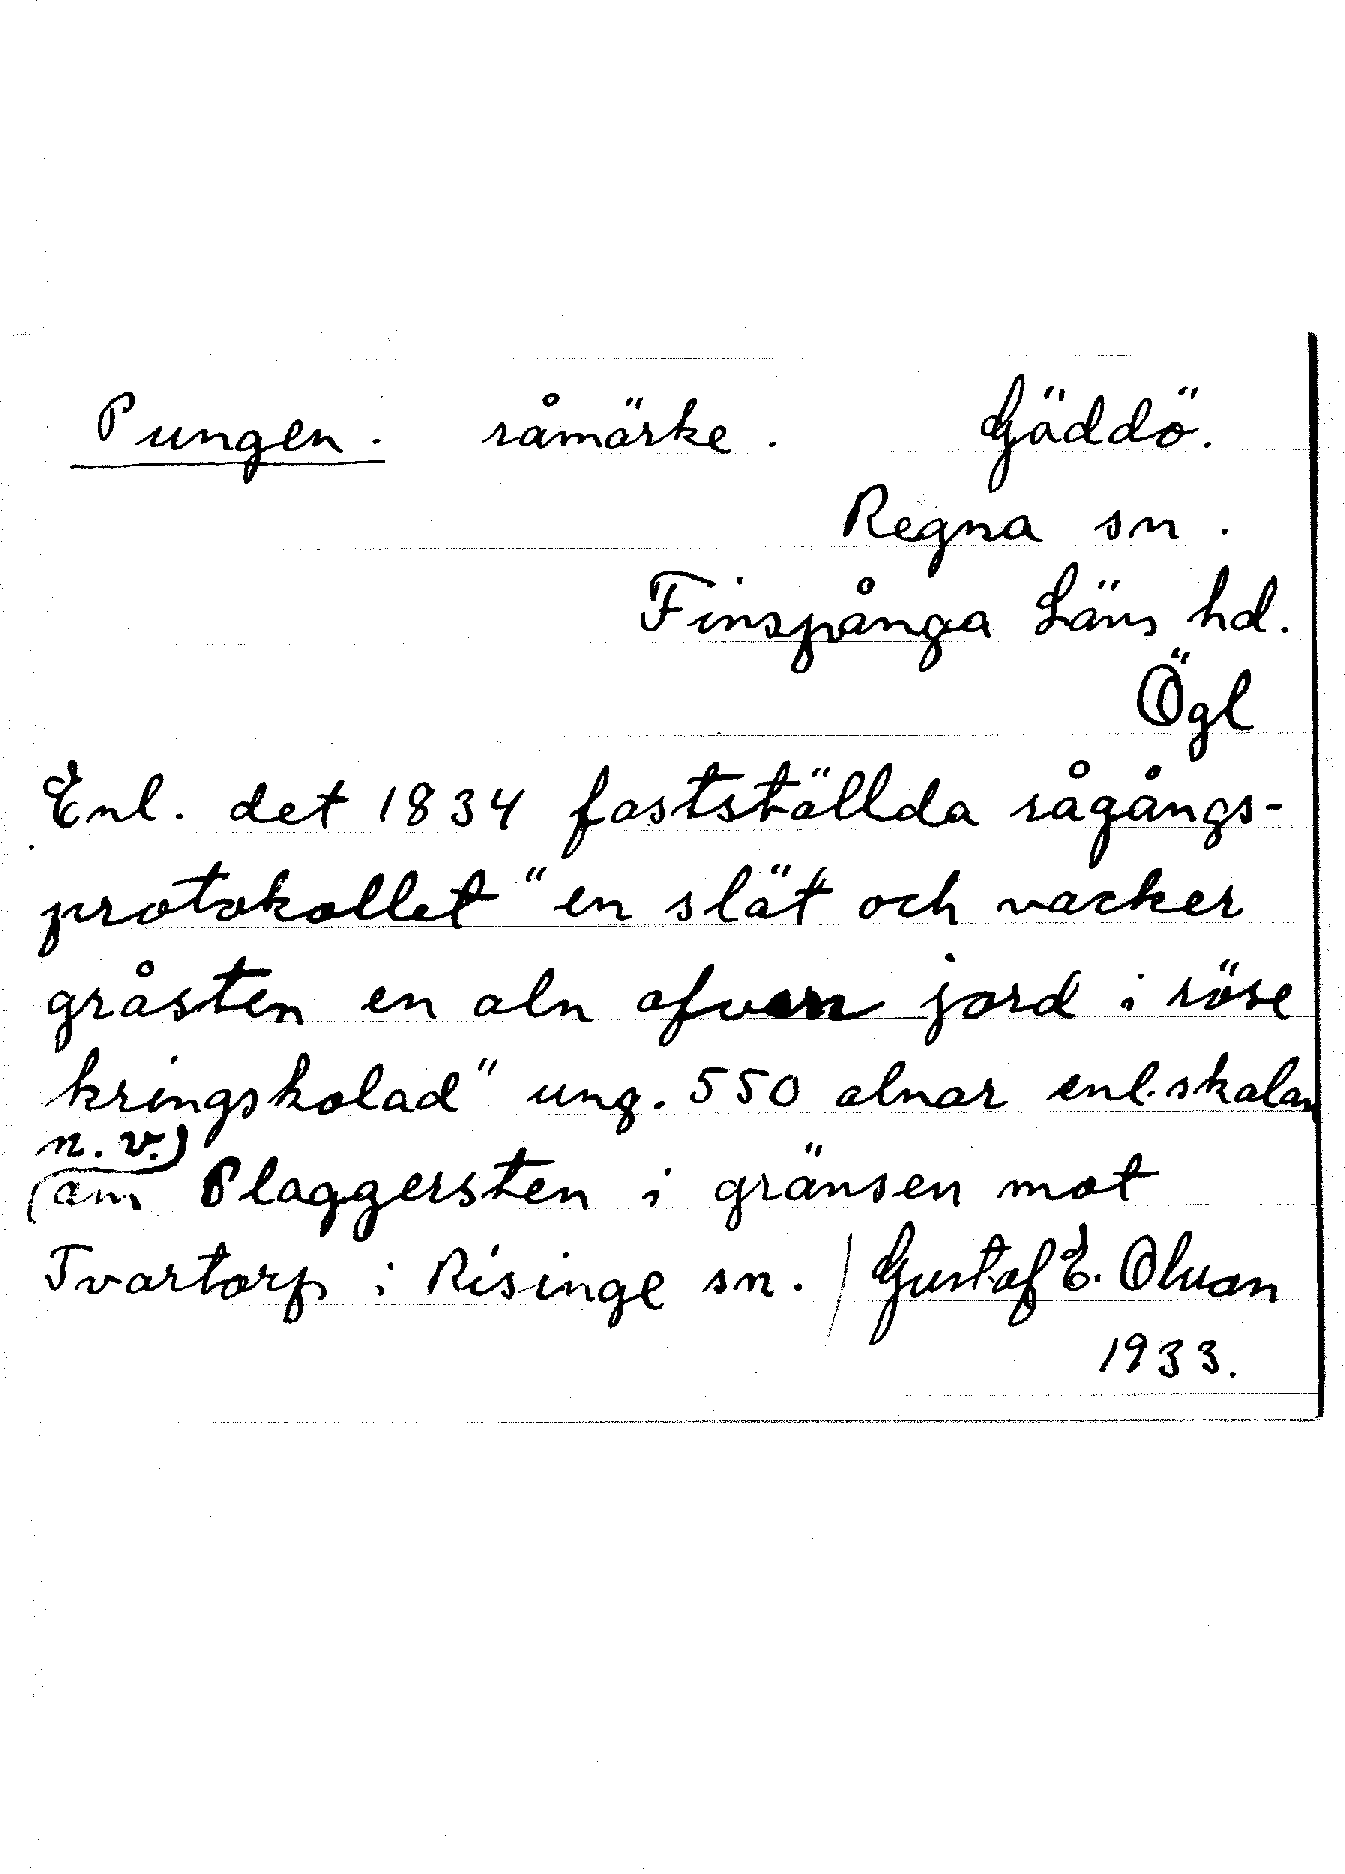 Pungen. råmärke. Gäddö.
Regna sn.
Finspånga Läns hd.
Ögl
Enl. det 1834 fastställda rågångs-
protokollet "en slät och vacker
gråsten en aln ofvan jord i röse
kringskolad" ung. 550 alnar enl. skalan
n. v.
(om Plaggersten i gränsen mot
Tvartorp i Risinge sn. / Gustaf E. Olsson
1933.